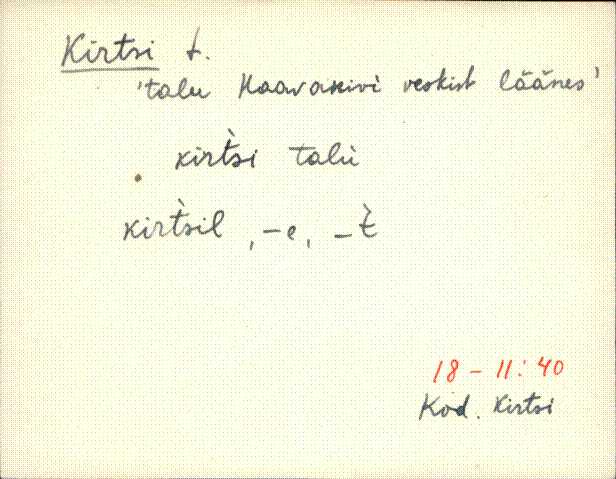 Kirtsi t.
'talu Haavakivi veskist läänes'
kirt̀si talù
kirt̀sil, -e, -t̀
18-11:40
Kod. Kirtsi